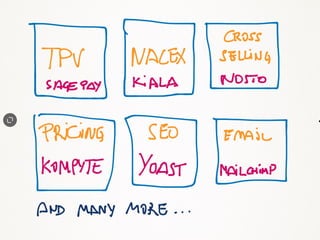 TPV
SAGEPAY
NACEX
KIALA
CROSS
SELLING
NOSTO
PRICING
KOMPYTE
SEO
YOAST
EMAIL
MAILCHIMP
AND MANY MORE...